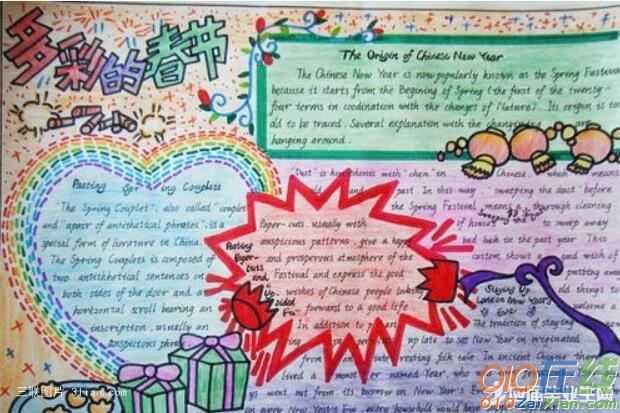 多彩的春节
The Origin of Chinese New Year
The Chinese New Year is now popularly known as the Spring Festival
because it starts from the Begining of Spring (the first of the twenty-
four terms in coodination with the changes of Nature). Its origin is too
old to be traced. Several explanation with the are
hanging around.
Pasting ing Couplets
"The Spring Couplet", also called "couplet"
and "apair of antithetical phrases", is a
special form of lierature in China.
The Spring Couplets is composed of
two antithetical sentences on
both sides of the door and a
horizontal scroll bearing an
inscription, usually an
auspicious phra
"Dust" is with "chen" in Chinese, which means
old and past. In this way, "sweeping the dust" before
the Spring Festival means a thorough cleaning
of house to sweep away
bad luck in the past year. This
custom shows a good wish of
putting away
old things to
welcome a
Sweeping the Dust
Pasting
Paper-
cuts
and
Up-
sided
Fu
Paper-cuts, usually with
auspicious patterns, give a happy
and prosperous atmosphere of the
Festival and express the good
wishes of Chinese people looking
forward to a good life.
In addition to p
Staying Up
on New Years
Eve
The tradition of staying
up late to see New Year in originated
from an interesting folk tale. In ancient China there
lived a monster named Year, who was
went out from its borrow on New Year's
New Year's Eve, every household would have
三联图片 3lian.com
010在线
010zaixian.com